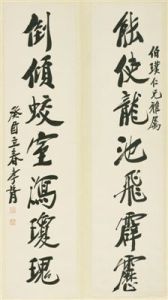 伯璞仁兄雅屬
能使龍池飛霹靂
倒傾蛟室瀉瓊瑰
癸酉立春李菁